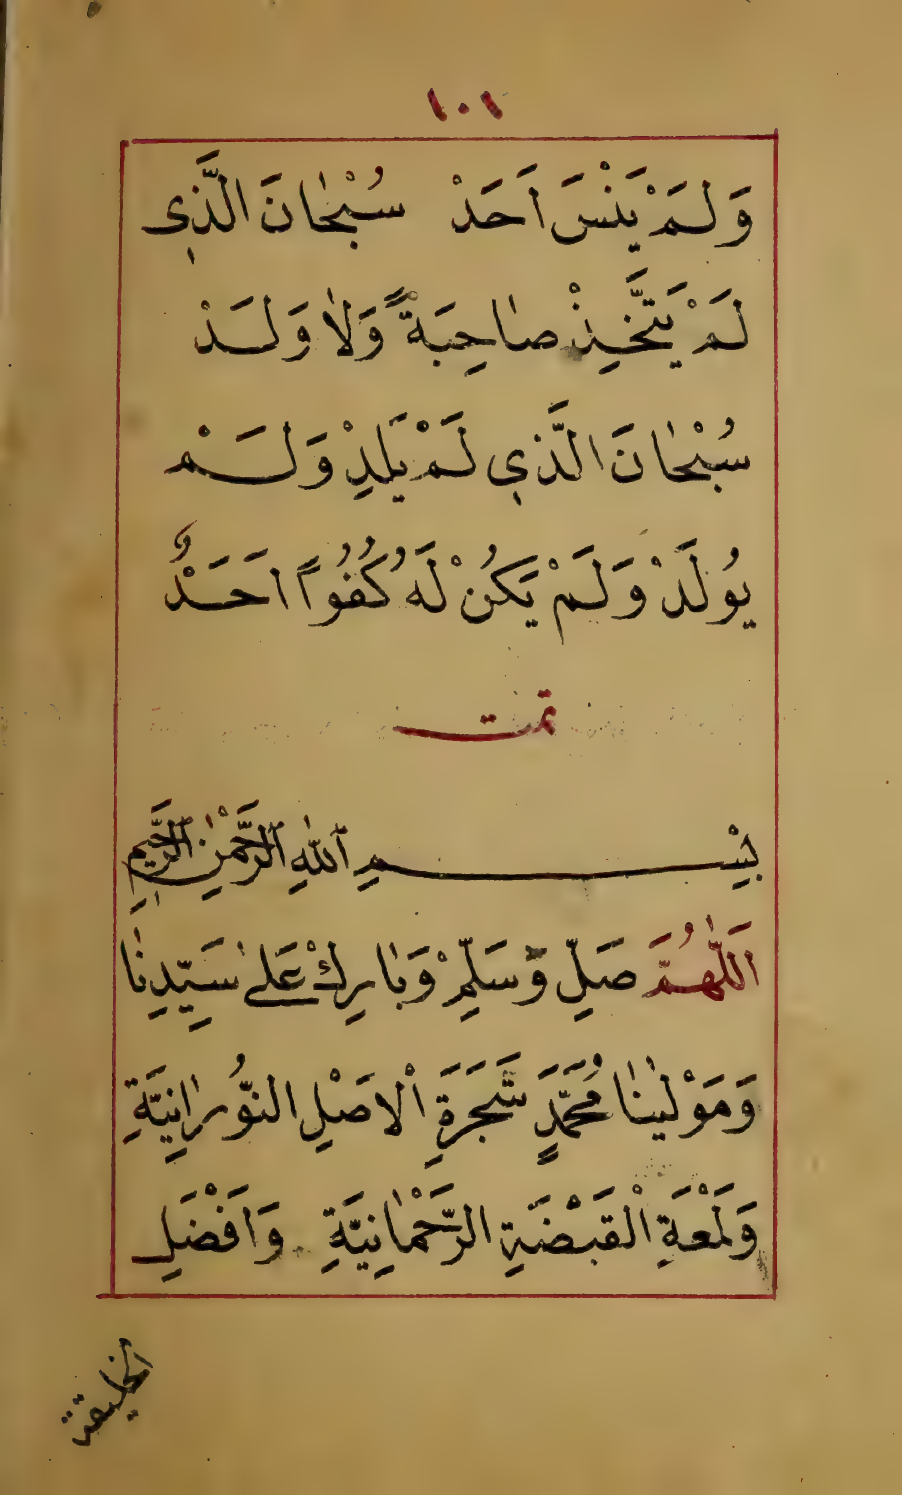 ١٠١
وَلَمْ يَنْسَ اَحَدْ سُبْحَانَ الَّذِى
لَمْ يَتَّخِذْ صَاحِبَةً وَلَا وَلَدْ
سُبْحَانَ الَّذِى لَمْ يَلِدْ وَلَمْ
يُولَدْ وَلَمْ يَكُنْ لَهُ كُفُوًا اَحَدٌ
تمت
بِسْمِ اللهِ الرَّحْمٰنِ الرَّحِيمِ
اَللّٰهُمَّ صَلِّ وَسَلِّمْ وَبَارِكْ عَلٰى سَيِّدِنَا
وَمَوْلٰينَا مُحَمَّدٍ شَجَرَةِ الْاَصْلِ النُّورَانِيَّةِ
وَلَمْعَةِ الْقَبْضَةِ الرَّحْمَانِيَّةِ وَاَفْضَلِ
الخليقة